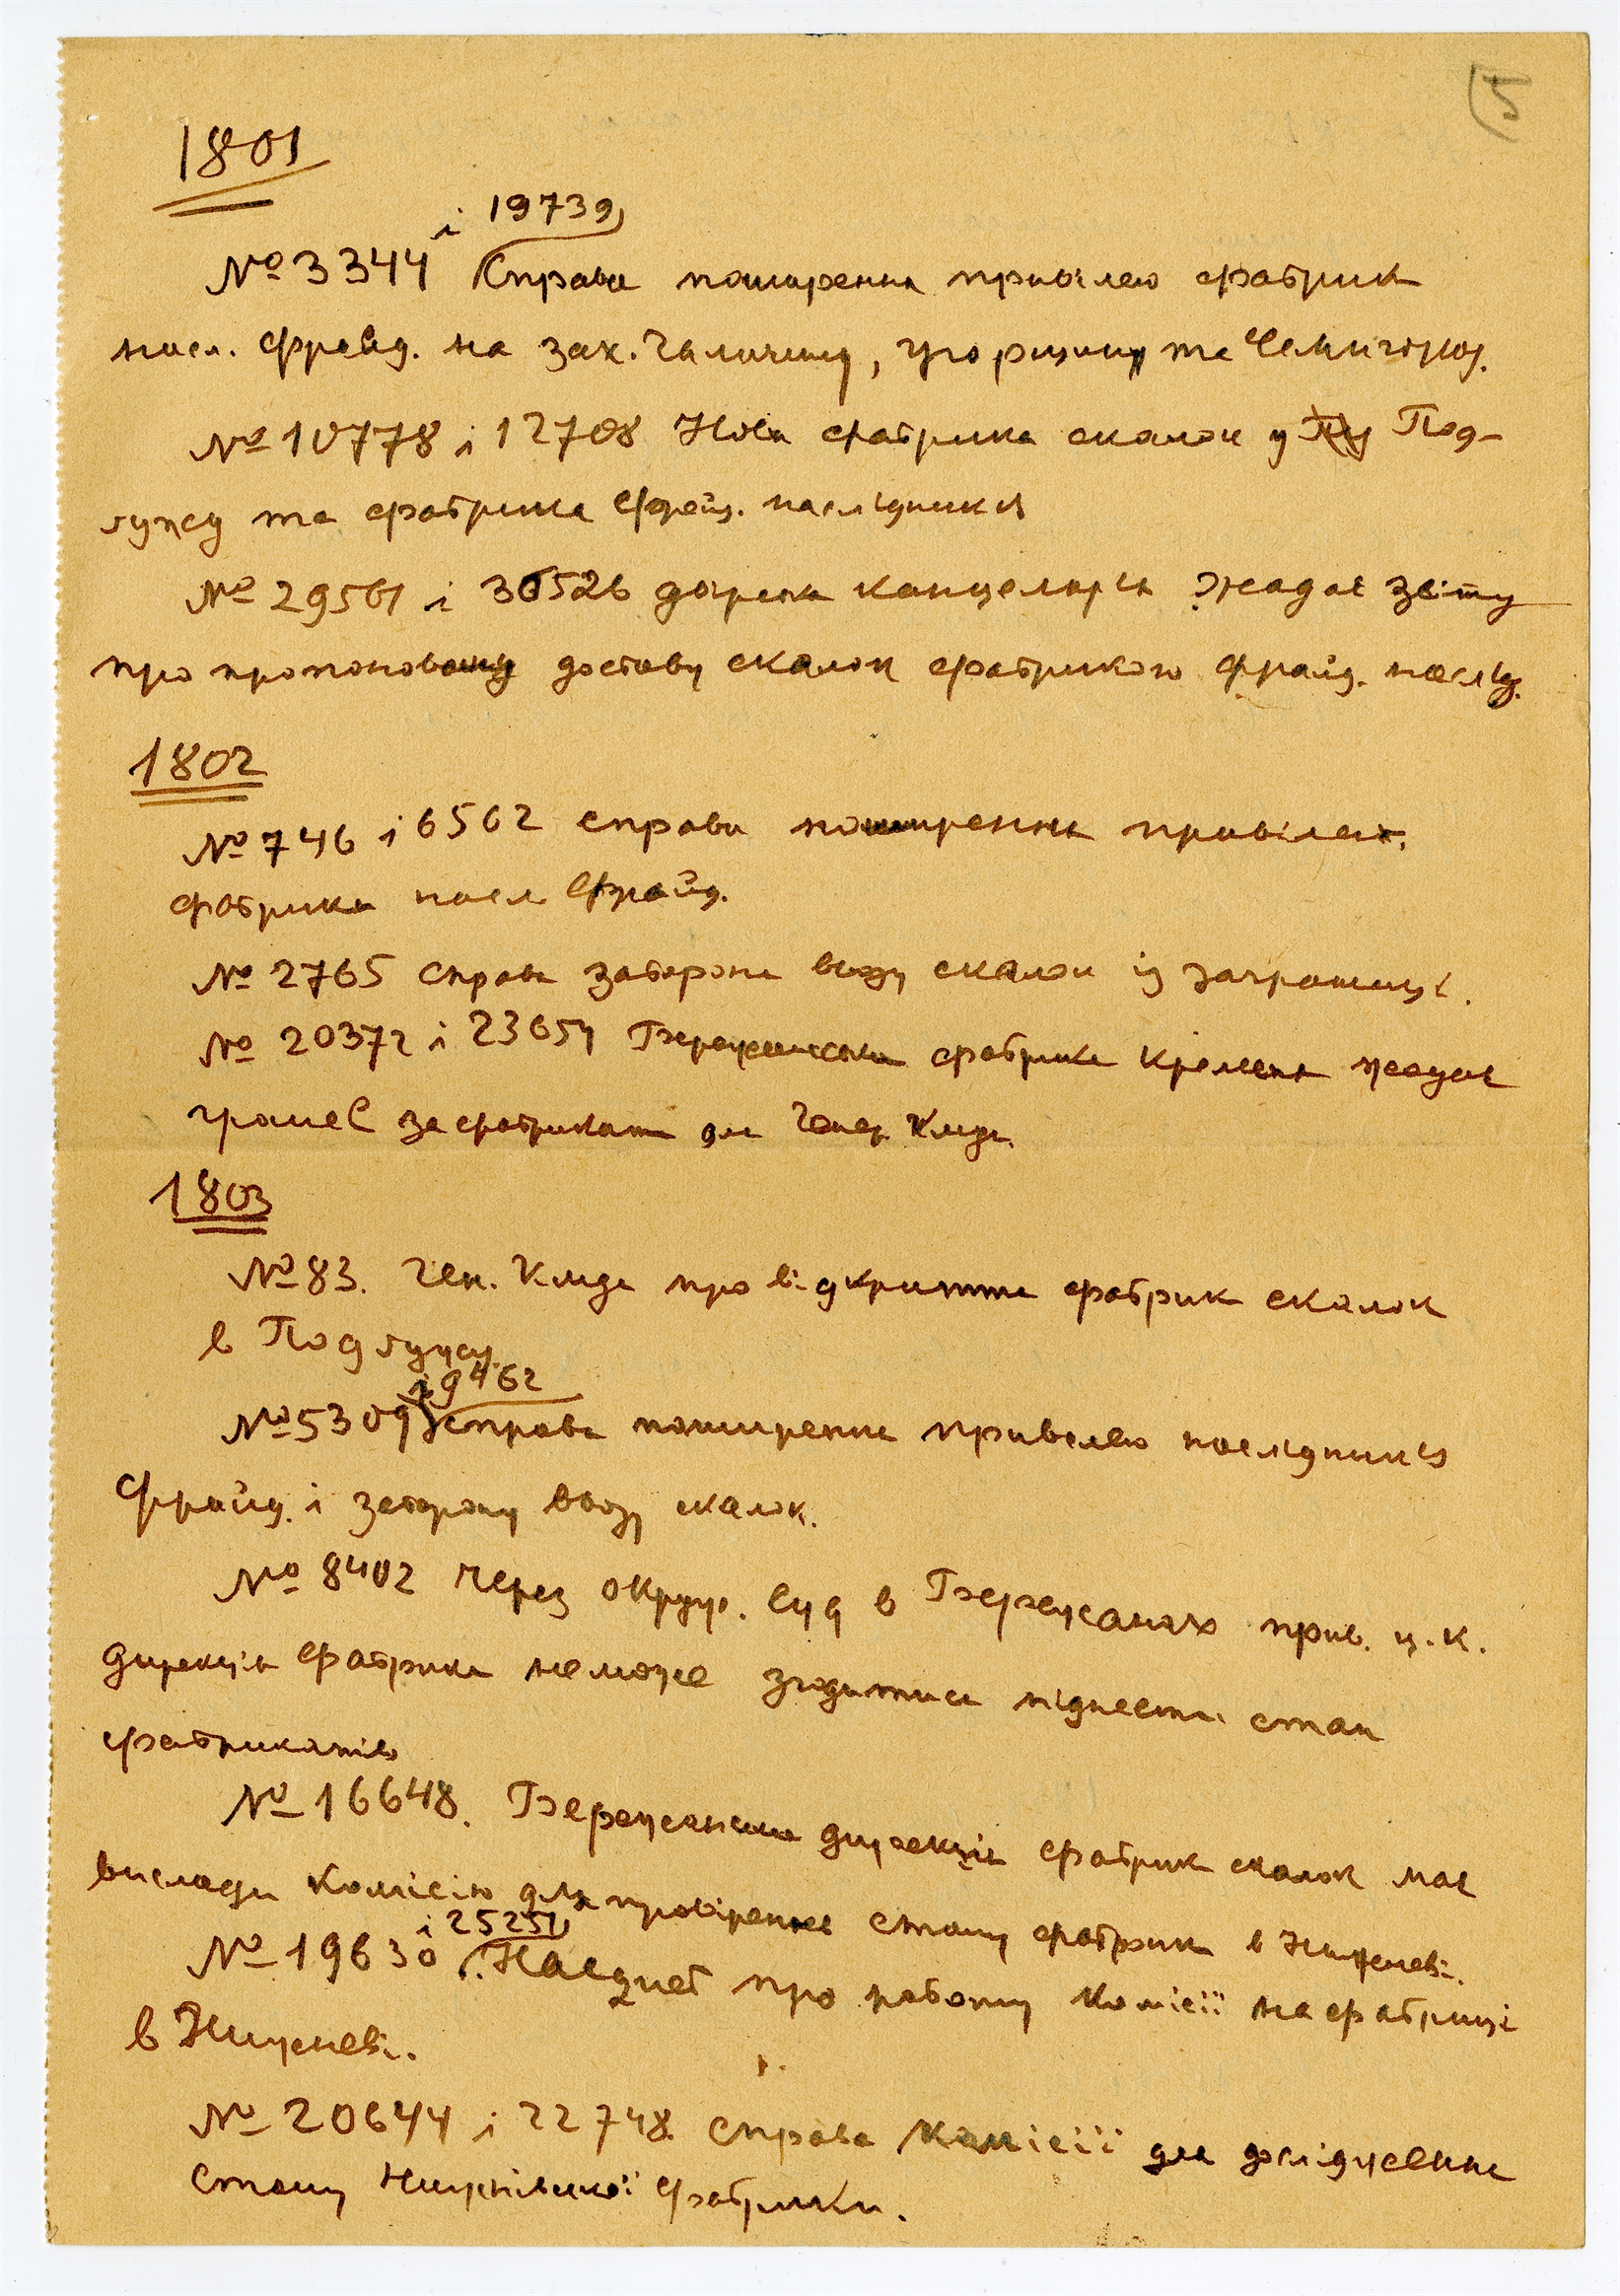 5
1801
і 19739
№ 3344 Справа поширення привілею фабрик
насл. Фрайд. на зах. Галичину, Угорщину та
№ 10778 і 12708 Нова фабрика скалок у Под-
гужу та фабрика Фрайд. наслідників
№ 29561 і 36526 дворська канцелярія жадає звіту
про пропоновану доставу скалок фабрикою Фрайд. наслід.
1802
№ 746 і 6562 справа поширення привілею
фабрики насл Фрайд.
№ 2765 Справа заборони ввозу скалок із заграниці.
№ 20372 і 23654 Бережанська фабрика кремення жадає
грошей за фабрикати для Генер. Кмди.
1803
№ 83. Ген. Кмда про відкриття фабрик скалок
в Подгужу.
і 9462
№ 5309 справа поширення привілею наслідників
Фрайд. і заборону ввозу скалок.
№ 8402 Через окруж. суд в Бережанах прив. ц.к.
дирекція фабрики не може згодитися піднести стан
фабрикатів
№ 16648. Бережанська дирекція фабрик скалок має
вислати комісію для провірення стану фабрик в Нижневі.
і 25251
№ 19630 Наслідки про роботу комісії на фабриці
в Нижневі.
№ 20644 і 22748. Справа комісії для дослідження
стану Нижнівської фабрики.